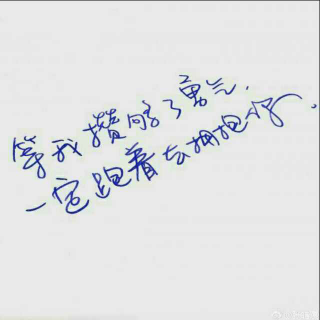 等我攒够了勇气.
一定跑着去拥抱你.